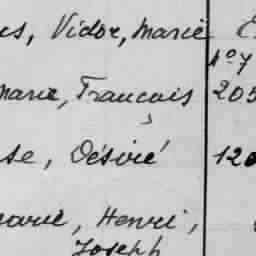 us, Vidor, Marie
N° 7
Marie, Francois 205
se, Désiré 120
Marie, Henri,
Joseph